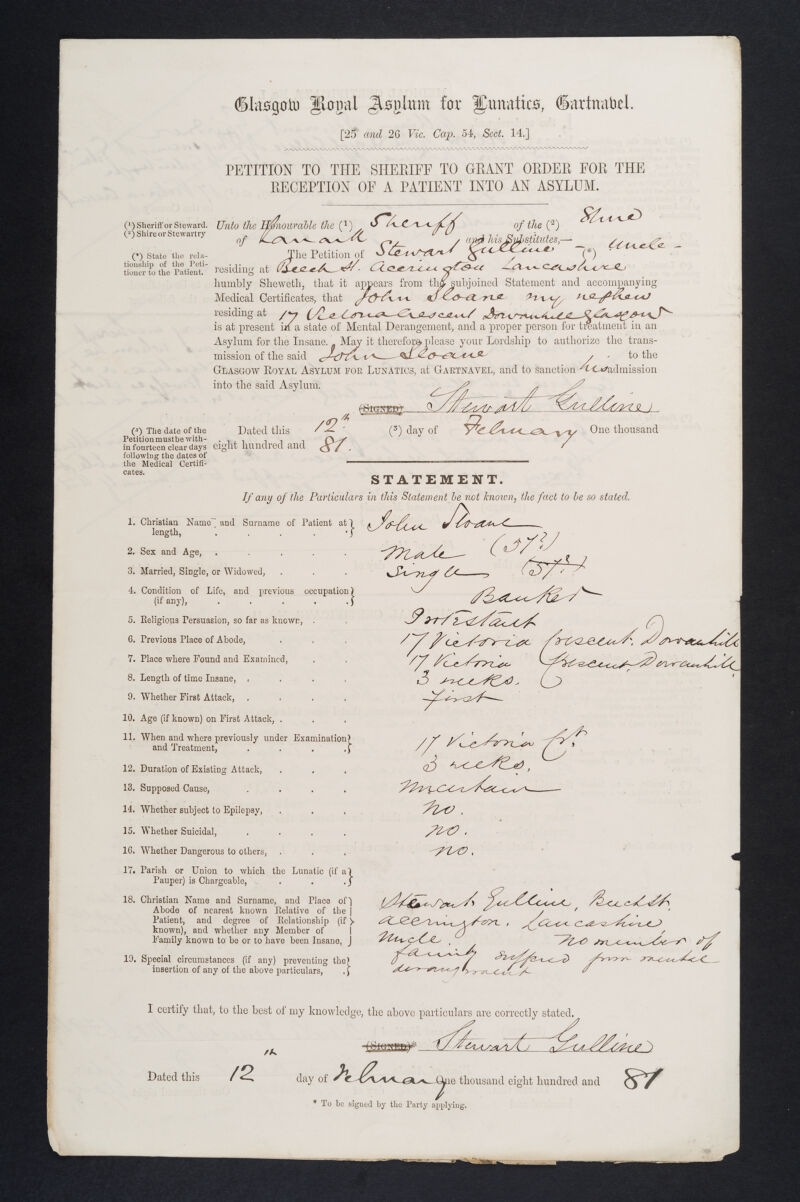 Glasgow Royal Asylum for Lunatics, Gartnabel.
[25 and 26 Vic. Cap. 54, Sect. 14.]
PETITION TO THE SHERIFF TO GRANT ORDER FOR THE
RECEPTION OF A PATIENT INTO AN ASYLUM.
(¹) Sheriff or Steward.
(²) Shire or Stewartry
(*) State the rela-
tionship of the Peti-
tioner to the Patient.
Unto the Honourable the (¹) Sheriff of the (²) Shire
of Lanark and his Substitutes,—
The Petition of Stewart Gulline. – (*) Uncle –
residing at Beech St. Accrington Lancashire
humbly Sheweth, that it appears from the subjoined Statement and accompanying
Medical Certificates, that John Sloane my nephew
residing at 17 Victoria Crescent Dowanhill Glasgow
is at present in a state of Mental Derangement, and a proper person for treatment in an
Asylum for the Insane. May it therefore please your Lordship to authorize the trans-
mission of the said John Sloane to the
GLASGOW ROYAL ASYLUM FOR LUNATICS, at GARTNAVEL, and to sanction his admission
into the said Asylum.
(SIGNED) Stewart Gulline
(³) The date of the
Petition must be with-
in fourteen clear days
following the dates of
the Medical Certifi-
cates.
Dated this 12th (³) day of February One thousand
eight hundred and 81.
STATEMENT.
If any of the Particulars in this Statement be not known, the fact to be so stated.
1. Christian Name and Surname of Patient at
length, John Sloane
2. Sex and Age, Male (37?)
3. Married, Single, or Widowed, Single (37?)
4. Condition of Life, and previous occupation
(if any), Banker
5. Religious Persuasion, so far as known, Protestant
6. Previous Place of Abode, 17 Victoria Crescent. Dowanhill
7. Place where Found and Examined, 17 Victoria Crescent, Dowanhill
8. Length of time Insane, 3 weeks.
9. Whether First Attack, First
10. Age (if known) on First Attack,
11. When and where previously under Examination
and Treatment, 17 Victoria Crt.
12. Duration of Existing Attack, 3 weeks.
13. Supposed Cause, Uncertain
14. Whether subject to Epilepsy, No.
15. Whether Suicidal, no.
16. Whether Dangerous to others, no.
17. Parish or Union to which the Lunatic (if a
Pauper) is Chargeable,
18. Christian Name and Surname, and Place of
Abode of nearest known Relative of the
Patient, and degree of Relationship (if
known), and whether any Member of
Family known to be or to have been Insane,
Stewart Gulline, Beech St.
Accrington. Lancashire
Uncle. No member of
family suffered from mental
derangement
19. Special circumstances (if any) preventing the
insertion of any of the above particulars,
I certify that, to the best of my knowledge, the above particulars are correctly stated.
(SIGNED)* Stewart Gulline
Dated this 12th day of February One thousand eight hundred and 81
* To be signed by the Party applying.